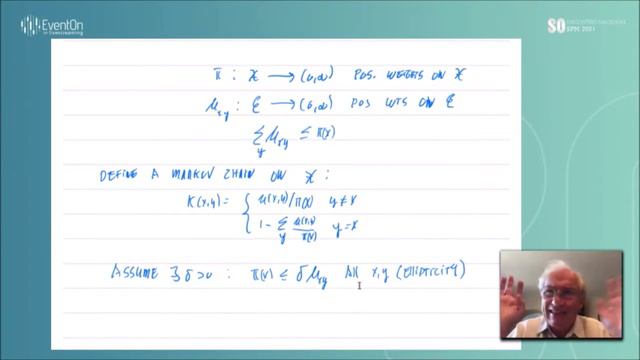 EventOn
in Livestreaming
SPM 2021
π : X → (0,∞) POS. WEIGHTS ON X
μ_xy : E → (0,∞) POS WTS ON E
∑_y μ_xy ≤ π(x)
DEFINE A MARKOV CHAIN ON X :
K(x,y) = { μ(x,y)/π(x) y ≠ x
1 - ∑_y μ(x,y)/π(x) y = x
ASSUME ∃ δ>0 : π(x) ≤ δ μ_xy ALL x,y (ELLIPTICITY)